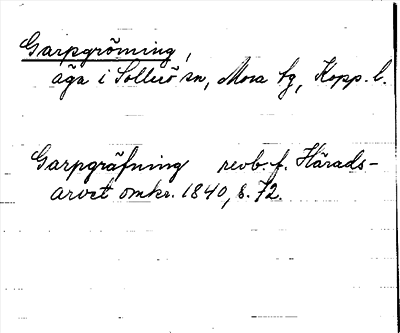 Garpgröning,
äga i Sollerö sn, Mora tg, Kopp. l.
Garpgräfning revb. f. Härads-
arvet omkr. 1840, s. 72.